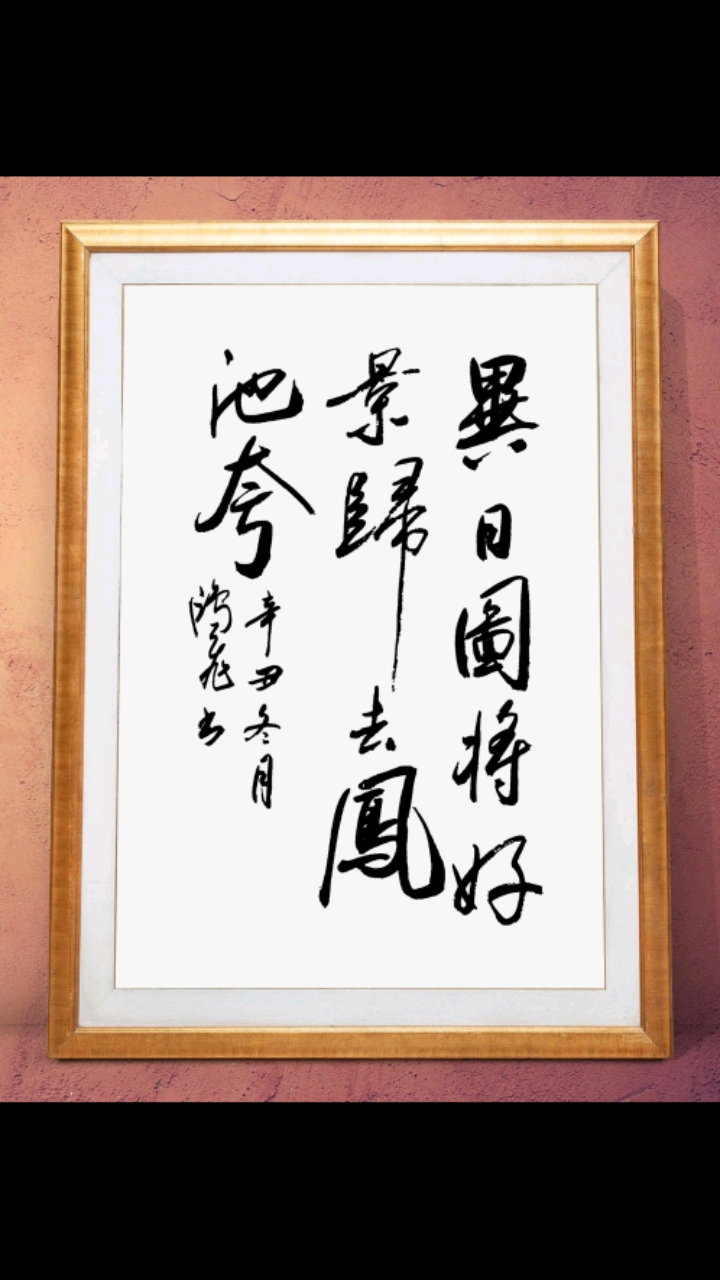 異日圖將好
景歸去鳳
池夸
辛丑冬月
鴻飛书